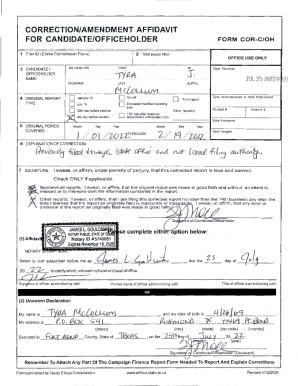 CORRECTION/AMENDMENT AFFIDAVIT
FOR CANDIDATE/OFFICEHOLDER
FORM COR-C/OH
1 Filer ID (Ethics Commission Filers)
2 Total pages filed:
OFFICE USE ONLY
3 CANDIDATE / OFFICEHOLDER NAME
FIRST
MI
TYRA J
NICKNAME LAST SUFFIX
McCollum
Date Received
JUL 25 2022
4 ORIGINAL REPORT TYPE
January 15
July 15
30th day before election
8th day before election
Runoff
Other (specify)
Receipt #
Date Processed
5 ORIGINAL PERIOD COVERED
Month Day Year
1 / 01 / 2022 THROUGH 2 / 19 / 2022
Date Imaged
6 EXPLANATION OF CORRECTION
Previously filed through state office and not local filing authority.
7 SIGNATURE I swear, or affirm, under penalty of perjury, that this corrected report is true and correct.
Check ONLY if applicable:
Semiannual reports: I swear, or affirm, that the original report was made in good faith and without an intent to
mislead or to misrepresent the information contained in the report.
Other reports: I swear, or affirm, that I am filing this corrected report not later than the 14th business day after the
date I learned that the report as originally filed is inaccurate or incomplete. I swear, or affirm, that any error or
omission in the report as originally filed was made in good faith.
Signature of Candidate/Officeholder
JAMES L. GOULDSBY
NOTARY PUBLIC, STATE OF TEXAS
Please complete either option below:
(1) Affidavit
Sworn to and subscribed before me by
this the 25 day of July
20 22, to certify which, witness my hand and seal of office.
Signature of officer administering oath
Printed name of officer administering oath
Title of officer administering oath
OR
(2) Unsworn Declaration
My name is TYRA McCollum, and my date of birth is
My address is P.O. BOX 541
Richmond, TX
(street) (city) (state) (zip code) (country)
Executed in Fort Bend County, State of Texas, on the 25th day of July, 20 22
(month) (year)
Signature of Candidate/Officeholder (Declarant)
Remember To Attach Any Part Of The Campaign Finance Report Form Needed To Report And Explain Corrections
Forms provided by Texas Ethics Commission
www.ethics.state.tx.us